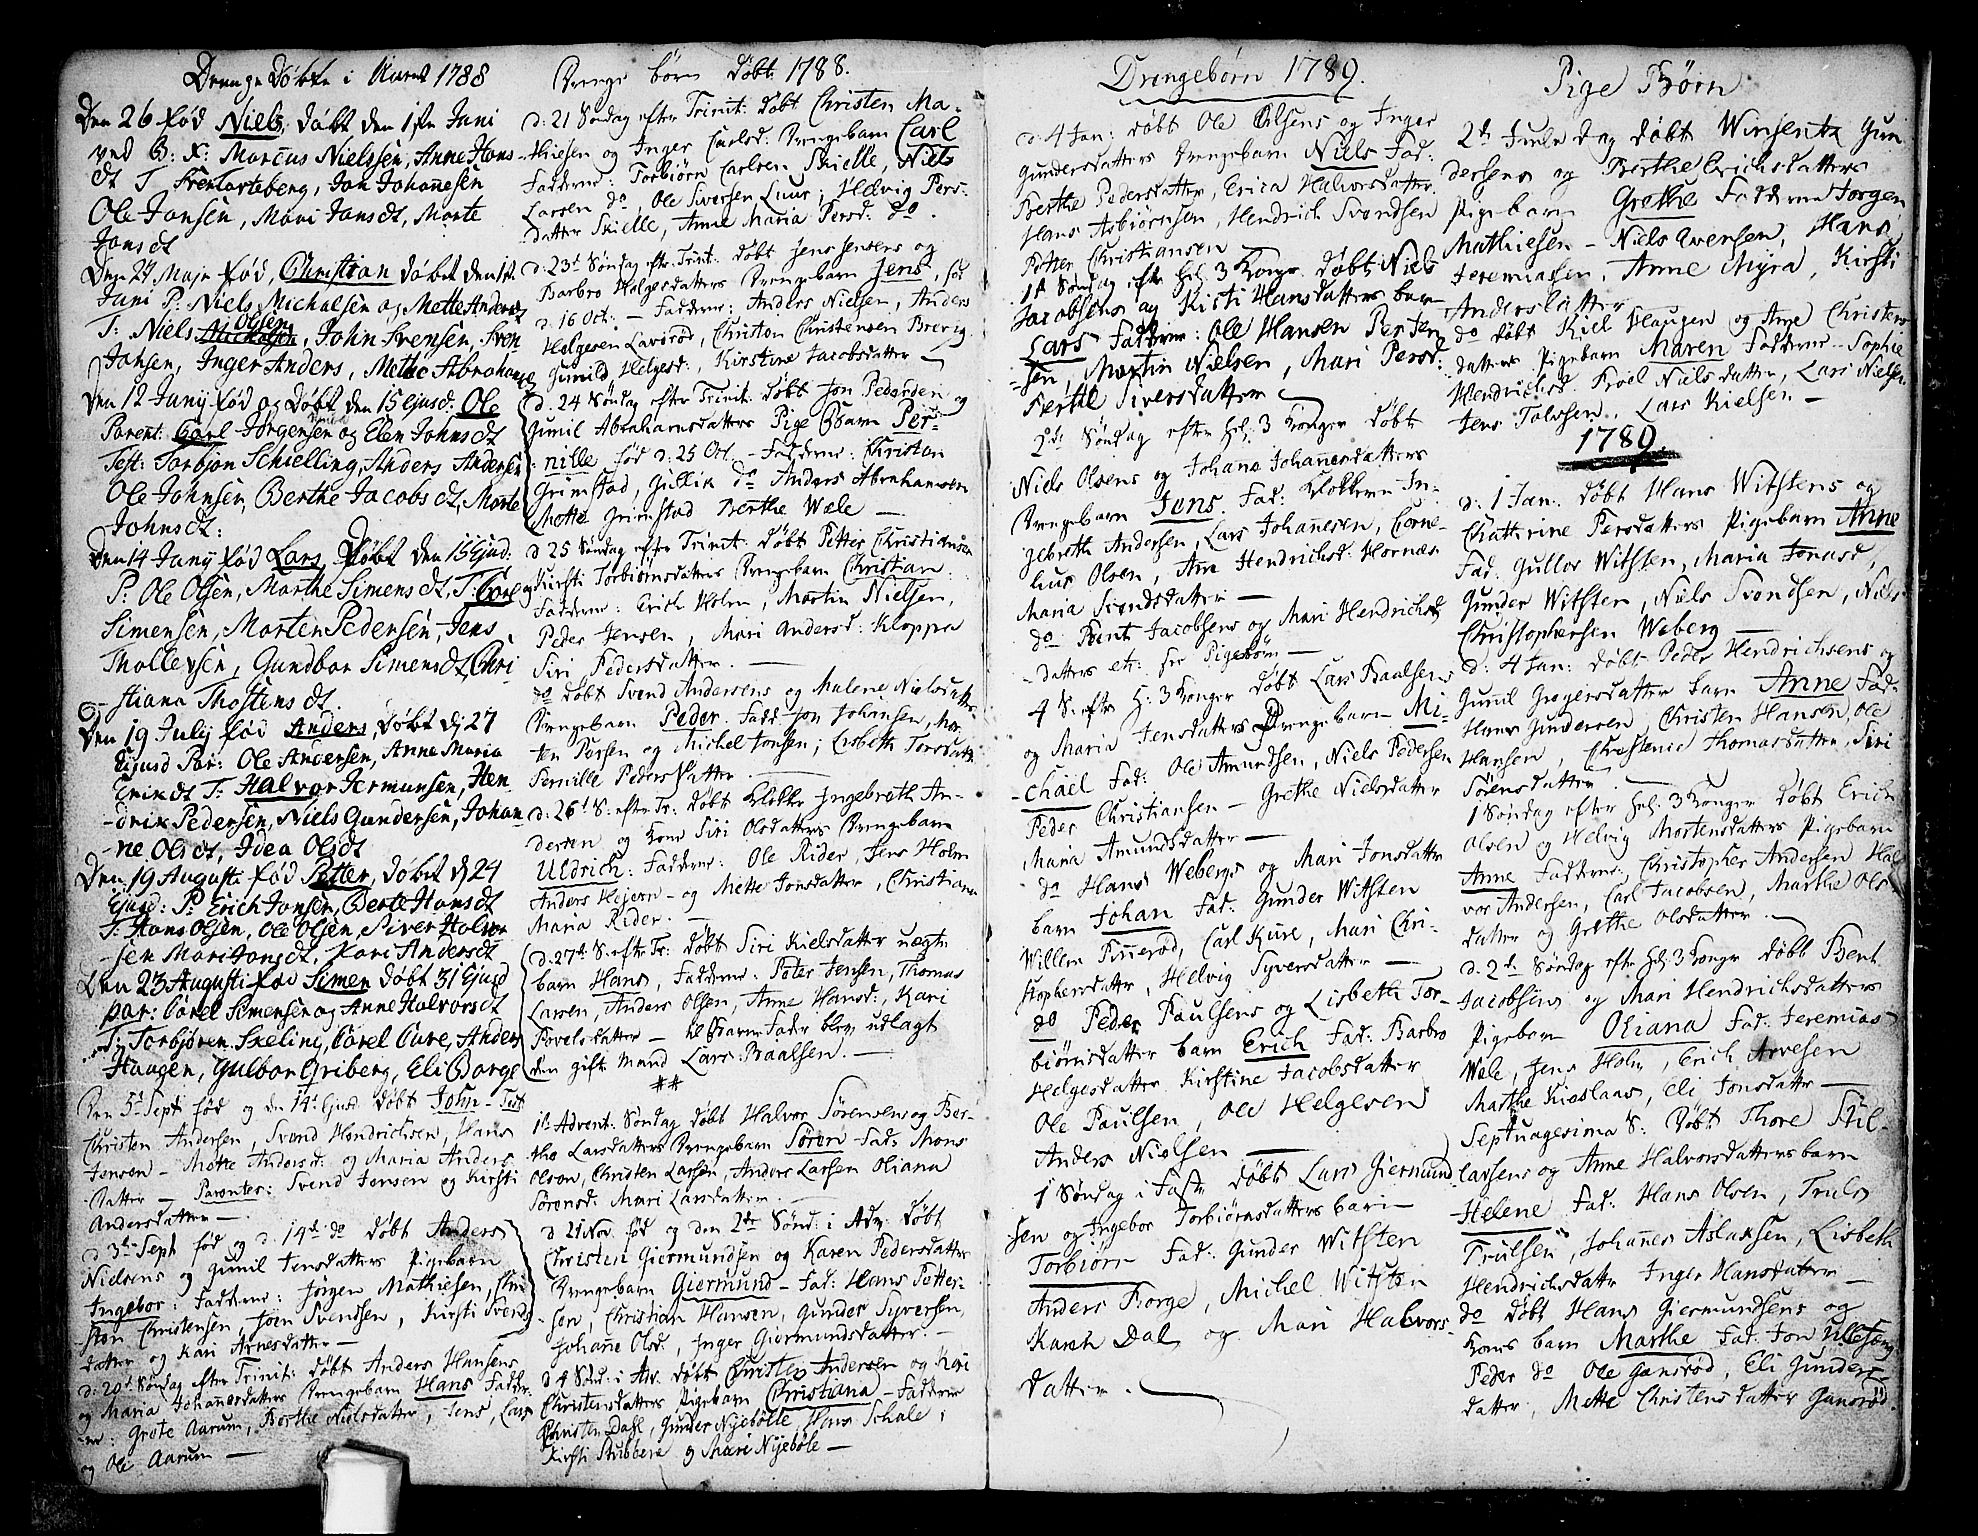 Drenge Døbte i Aaret 1788
Den 26 fød Niels, døbt den 1ste Juni
Marcus Nielssen, Anne Hans
dt T Iver Lorteberg, Jon Johanesen
Ole Jansen, Mari Jansdt, Marte
Jansdt
Den 27 Maje fød, Christian døbt den 1st
Juni P: Niels Michaelsen og Mette Anders
T: Niels Olsen, John Svensen, Sven
Johsen, Inger Anders, Methe Abraham
Den 12 Junij fød og Døbt den 15 ejusd: Ole
Parent: Carl Jorgensen og Elen Johnsdt
Test: Torbjon Schielling, Anders Andersen
Ole Johnsen, Berthe Jacobsdt, Morte
Johnsdt:
Den 14 Junij fød Lars, Døbt den 15 Ejusd:
P: Ole Olsen, Marthe Simensdt, T: Carel
Simensen, Morten Pedersen, Jens
Thollevsen, Gundbor Simensdt, Chri
stiana Thostensdt.
Den 19 Julij fød Anders, døbt dj 27
Ejusd Par: Ole Andersen, Anne Maria
Erixdt T: Halvor Armunsen, Hen
-drix Pedersen, Niels Gundersen, Johan
-ne Olsdt, Idea Olsdt
Den 19 Augusti fød Petter, døbt dj 24
Ejusd: P: Erich Jonsen, Berte Hansdt
T: Hans Olsen, Ole Olsen, Siver Halvor
-sen Mari Jansdt, Kari Andersdt
Den 23 Augusti fød Simen døbt 31 Ejusd
par: Carel Simensen og Anne Halvorsdt
T: Torbjøren Skeling, Carel Cure, Anders
Haugen, Gulbor Griberg, Eli Borge
Den 5te Sept fød og den 14d Ejusd døbt John - Test
Christen Andersen, Svend Hendrichsen, Hans
Jensen - Mette Andersd: og Maria Anders
datter - Parenter: Svend Jensen og Kirsti
Andersdatter -
d 3d Sept fød og d. 14d do døbt Anders
Nielsens og Gunil Jensdatters Pigebarn
Ingebor: Fadderne: Jørgen Mathiesen, Chri
sten Christensen, Joen Svendsen, Kirsti Svends
datter og Kari Arnesdatter -
d: 20d Søndag efter Trinit: døbt Anders Hansens
og Maria Johannesdatters Drengebarn Hans Fadder
ne: Grete Aarum, Berthe Nielsdatter, Jens, Lars
og Ole Aarum -
Drenge børn døbt 1788.
d: 21 Søndag efter Trinit: døbt Christen Ma-
thiesen og Inger Carlsd: Drengebarn Carl
Fadderne: Torbiørn Carlsen Skielle, Niels
Larsen do, Ole Siversen Cuur, Helvig Pers-
datter Skielle, Anne Maria Persd: do.
d: 23d Søndag eftr. Trinit: døbt Jens Jensens og
Barbro Helgesdatters Drengebarn Jens, fød
d. 16 Oct: - Fadderne: Anders Nielsen, Anders
Helgesen Lavørød, Christen Christensen Brevig
Gunild Helgesd:, Kirstine Jacobsdatter -
d. 24 Søndag efter Trinit: døbt Jon Pedersen og
Gunil Abrahamsdatters Pige Barn Per-
nille fød d. 25 Oct. - Fadderne: Christen
Grimstad, Gullik do Anders Abrahamsen
Mette Grimstad Berthe Wæle -
d 25 Søndag efter Trinit: døbt Petter Christiansen
og Kirsti Torbiørnsdatters Drengebarn Christian:
Fadderne: Erich Holm, Martin Nielsen,
Peder Jensen, Mari Andersd: Kloppa
Siri Pedersdatter. -
do døbt Svend Andersens og Malene Nielsdatter
Drengebarn Peder. Fadd: Jon Johansen, Mor
ten Persen og Michel Jonsen; Lisbeth Torsdatter
Pernille Pedersdatter -
d: 26d S: efter Tr: døbt Klokker Ingebreth An-
dersen og Kone Siri Olsdatters Drengebarn
Uldrich: Fadderne: Ole Rider, Jens Holm
Anders Hejern - og Mette Jonsdatter, Christiane
Maria Rider. -
d: 27d S. eftr Tr: døbt Siri Kielsdatter uægte
barn Hans, Fadderne: Peter Jensen, Thomas
Larsen, Anders Olsen, Anne Hansd:, Kari
Povelsdatter - til Barne Fadr blev udlagt
den gifte Mand Lars Baalsen. -
1st Advent: Søndag døbt Halvor Sørensens og Ber-
the Larsdatters Drengebarn Søren - Fad: Mons
Olson, Christen Larsen, Anders Larsen Oliana
Sørensd: Mari Larsdatter. -
d 21 Nov. fød og den 2de Sønd: i Adv: døbt
Christen Giermundsen og Karen Pedersdatter
Drengebarn Giermund - Fad: Hans Petter-
sen, Christian Hansen, Gunder Syversen,
Johane Olsd, Inger Giermundsdatter. -
d 4 Sønd: i Adv. døbt Christen Andersen og Kari
Christensdatters Pigebarn Christiana - Fadderne
Christen Dahl, Gunder Nyebølle, Hans Schale,
Kirsti Stubbere og Mari Nyebøle -
Drengebørn 1789.
d: 4 Jan: døbt Ole Olsens og Inger
Gundersdatters Drengebarn Niels Fad:
Berthe Pedersdatter, Erica Halvorsdatter
Hans Asbiørnsen, Hendrich Svendsen
Petter Christiansen
1st Søndag eftr Hel. 3 Konger døbt Niels
Jacobsens og Kisti Hansdatters barn
Lars Fadderne: Ole Hansen Per Jen
-sen, Martin Nielsen, Mari Persd:
Berthe Siversdatter -
2de Søndag efter Hel: 3 Konger døbt
Niels Olsens og Johane Johanesdatters
Drengebarn Jens. Fad: Klokkern In-
gebreth Andersen, Lars Johanesen, Corne-
lius Olsen, Ane Hendrichsd: Hornæs
Maria Svendsdatter -
do Bent Jacobsens og Mari Hendrichs
datters etc: see Pigebørn -
4 S. eftr H: 3 Konger døbt Lars Baalsens
og Maria Jensdatters Drengebarn Mi-
-chael Fad: Ole Amundsen, Niels Pedersen
Peder Christiansen - Grethe Nielsdatter
Maria Amundsdatter -
do Hans Webergs og Mari Jonsdatter
barn Johan Fad: Gunder Witsten
Willem Finnerød, Carl Kure, Mari Chri-
stophersdattr, Helvig Syversdatter -
do Peder Paulsens og Lisbeth Tor-
biørnsdatter barn Erich Fad: Barbro
Helgesdatter Kirstine Jacobsdatter
Ole Paulsen, Ole Helgesen
Anders Nielsen -
1 Søndag i Faste døbt Lars Giermund
sen og Ingebor Torbiørnsdatters barn
Torbiørn Fad: Gunder Witsten
Anders Borge, Michel Witsten
Karen Dal og Mari Halvors-
datter.
Pige Børn
2de Juule dag døbt Winsentz Gun
dersens og Berthe Erichsdatters
Pigebarn Grethe Fadderne Jørgen
Mathiesen - Niels Evensen, Hans
Jeremiasen, Anne Myra, Kirsti
Andersdatter
do døbt Kiel Haugen og Ane Christens
datters Pigebarn Maren Fadderne - Sophie
Hendrichsd. Kroel Nielsdatter, Lars Nielsen
Jens Tolvsen, Lars Kielsen -
1789.
d. 1 Jan. døbt Hans Witstens og
Chathrine Persdatters Pigebarn Anne
Fad. Gullov Witsten, Maria Jonasd,
Gunder Witsten, Niels Svendsen, Niels
Christophersen Weberg -
d: 4 Jan: døbt Peder Hendrichsens og
Gunnil Gregersdatter barn Anne Fad-
Hans Gundersen Christen Hansen, Ole
Hansen, Christence Thomasdatter, Siri
Sørensdatter. -
1 Søndag efter Hel. 3 Konger døbt Erich
Olsen og Helvig Mortensdatters Pigebarn
Anne Fadderne: Christopher Andersen Hal
vor Andersen, Carl Jacobsen, Marthe Ols
datter og Grethe Olsdatter. -
d. 2de Søndag eftr Hel: 3 Konger døbt Bent
Jacobsens og Mari Hendrichsdatters
Pigebarn Oliana Fad: Jeremias
Wæle, Jens Holm, Erich Arvesen
Marthe Kiøslaas, Eli Jonsdatter -
Septuagesima S: Døbt Thore Skil-
larsens og Anne Halvorsdatters barn
Helene Fad: Hans Olsen, Truls
Trulsen, Johanes Aslaksen, Lisbeth
Hendrichsdattr Inger Hansdatter -
do døbt Hans Giermundsens og
Kones barn Marthe Fad: Jon Ullesøng
Peder do Ole Gansrød, Eli Gunders
datter, Mette Christensdatter Gansrød.
11